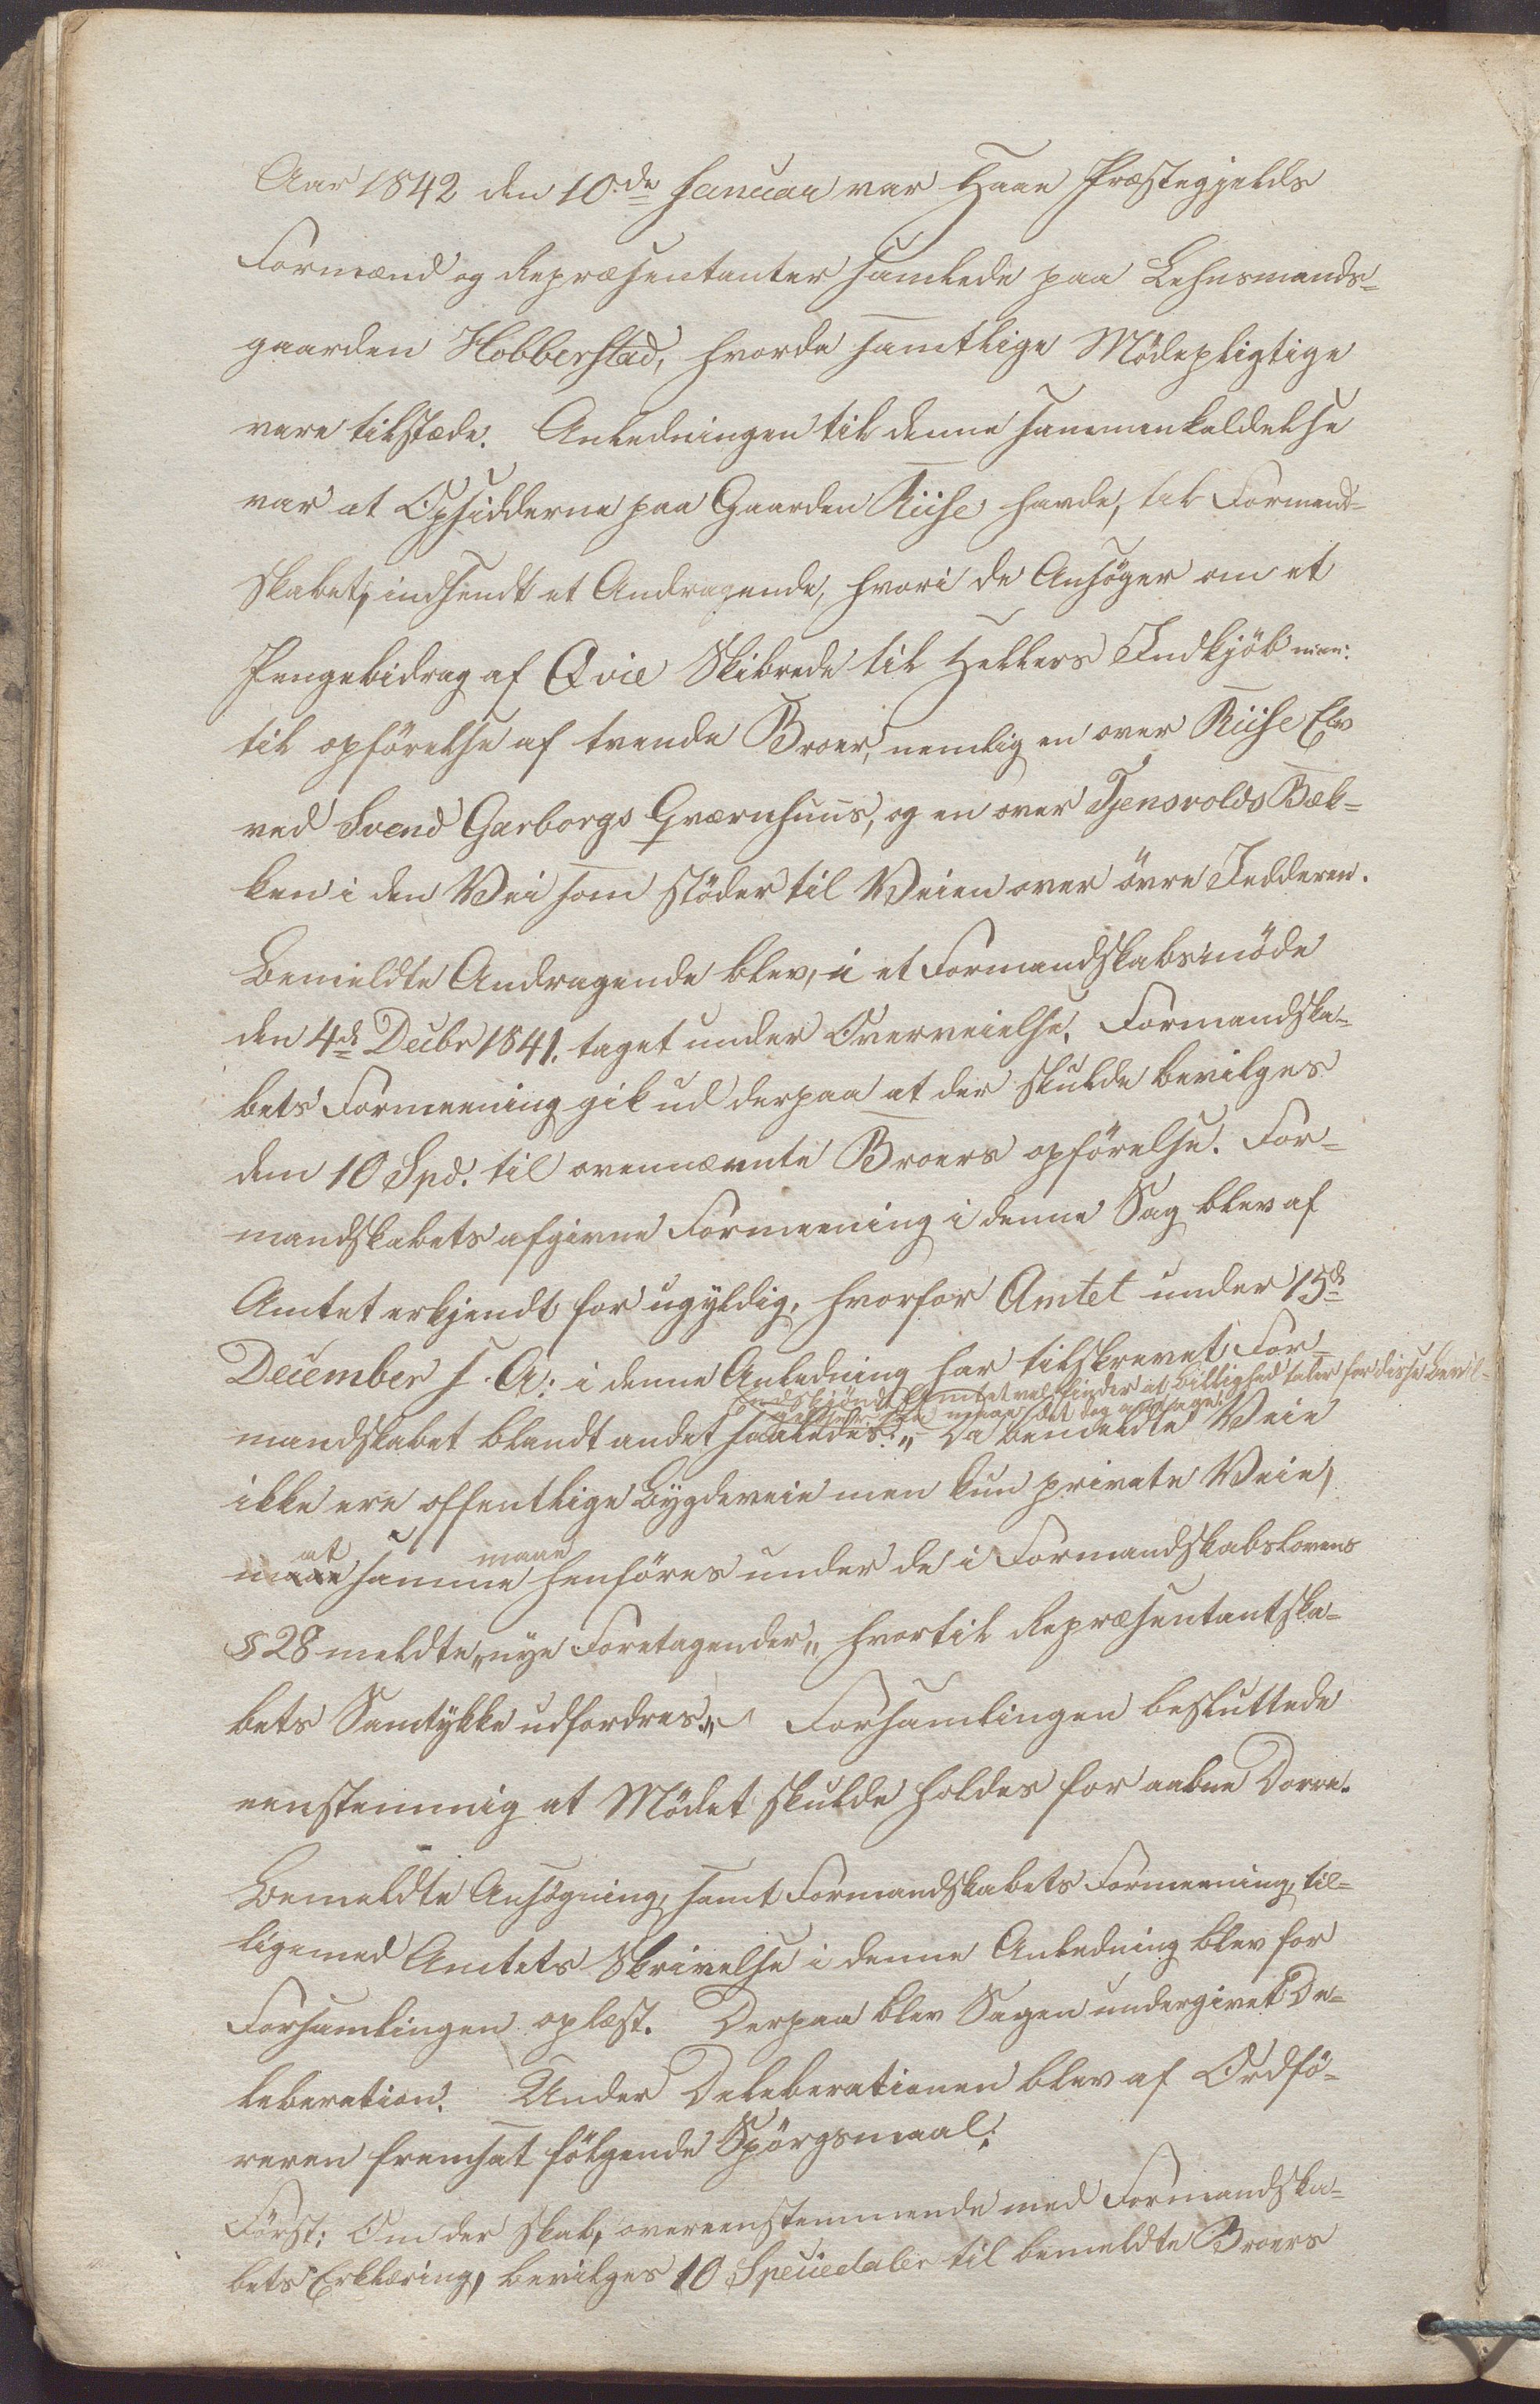 Aar 1842 den 10de Januar var Haae Præstegjelds
Formænd og Repræsentanter samlede paa Lehnsmands-
gaarden Hobberstad, hvorda samtlige Mödepligtige
vare tilstæde. Anledningen til denne sammenkaldelse
var at Opsidderne paa Gaarden Riise havde, til Formand-
skabet, indsendt et Andragende, hvori de Ansöger om et
Pengebidrag af Qvie Skibrede til Hellers Indkjöb
til opförelse af tvende Broer, nemlig en over Riise Elv
ved Svend Garborgs Qværnhuus, og en over Tjensvolds Bæk-
ken i den Vei som stöder til Veien over övre Jedderen.
Bemeldte Andragende blev, i et Formandskabsmöde
den 4de Decbr 1841. taget under Overveielse. Formandska-
bets Formeening gik ud derpaa at der skulde bevilges
dem 10 Spd. til ovennævnte Broers opförelse. For-
mandskabets afgivne Formeening i denne Sag blev af
Amtet erkjendt for ugyldig, hvorfor Amtet under 15de
December f. A: i denne Anledning har tilskrevet For-
Endskjöndt Amtet vel finder at Billighed taler for disse Bevil-
maae det dog
mandskabet blandt andet saaledes: „Da bemeldte Veie
ikke ere offentlige Bygdeveie men kun private Veie,
at maae
maae samme henföres under de i Formandskabslovens
§ 28 meldte „nye Foretagender„ hvortil Repræsentantska-
bets Samtykke udfordres.„ Forsamlingen besluttede
eenstemmig at Mödet skulde holdes for aabne Dörre.
Bemeldte Ansögning, samt Formandskabets Formeening, til-
ligemed Amtets Skrivelse i denne Anledning blev for
Forsamlingen oplæst. Derpaa blev Sagen undergivet De-
leberation. Under Deleberationen blev af Ordfö-
reren fremsat fölgende Spörgsmaal:
Först: Om der skal, overeenstemmende med Formandska-
bets Erklæring, bevilges 10 Speciedaler til bemeldte Broers